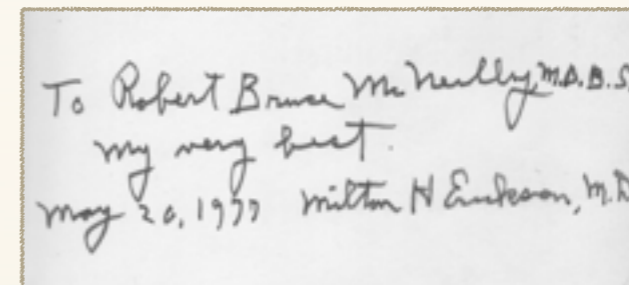 To Robert Bruce McNeilly, M.B.B.S
my very best.
May 20, 1977 Milton H Erickson, M.D